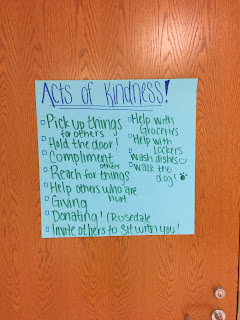 Acts of Kindness!
Pick up things
for others
Hold the door!
Compliment
others
Reach for things
Help others who are
hurt
Giving
Donating! (Rosedale
Invite others to sit with you!
Help with
Groceries
Help with
Lockers
Wash dishes
Walk the
dog!